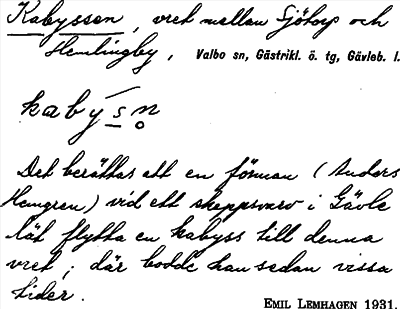 Kabyssen, vret mellan Sjötorp och
Hemlingby, Valbo sn, Gästrikl. ö. tg, Gävleb. l.
kabysn
Det berättas att en förman (Anders
Hemgren) vid ett skeppsvarv i Gävle
lät flytta en kabyss till denna
vret; där bodde han sedan vissa
tider.
EMIL LEMHAGEN 1931.